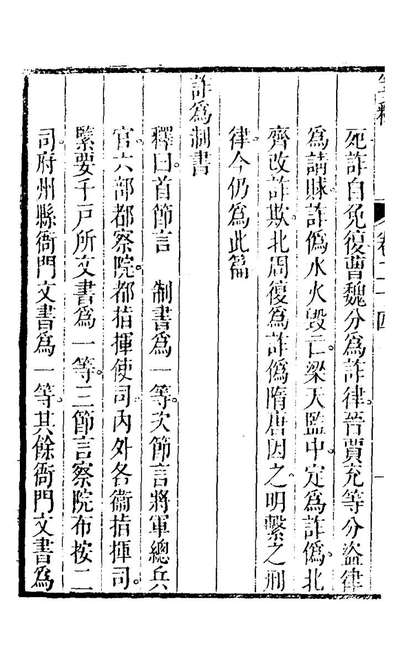 箋釋 卷二十四 一
死詐自免復曹魏分爲詐律晉賈充等分盜律
爲請賕詐僞水火毀亡梁天監中定爲詐僞北
齊改詐欺北周復爲詐僞隋唐因之明繫之刑
律今仍爲此篇
詐爲制書
釋曰首節言 制書爲一等次節言將軍總兵
官六部都察院都指揮使司內外各衞指揮司
緊要千戶所文書爲一等三節言察院布按二
司府州縣衙門文書爲一等其餘衙門文書爲